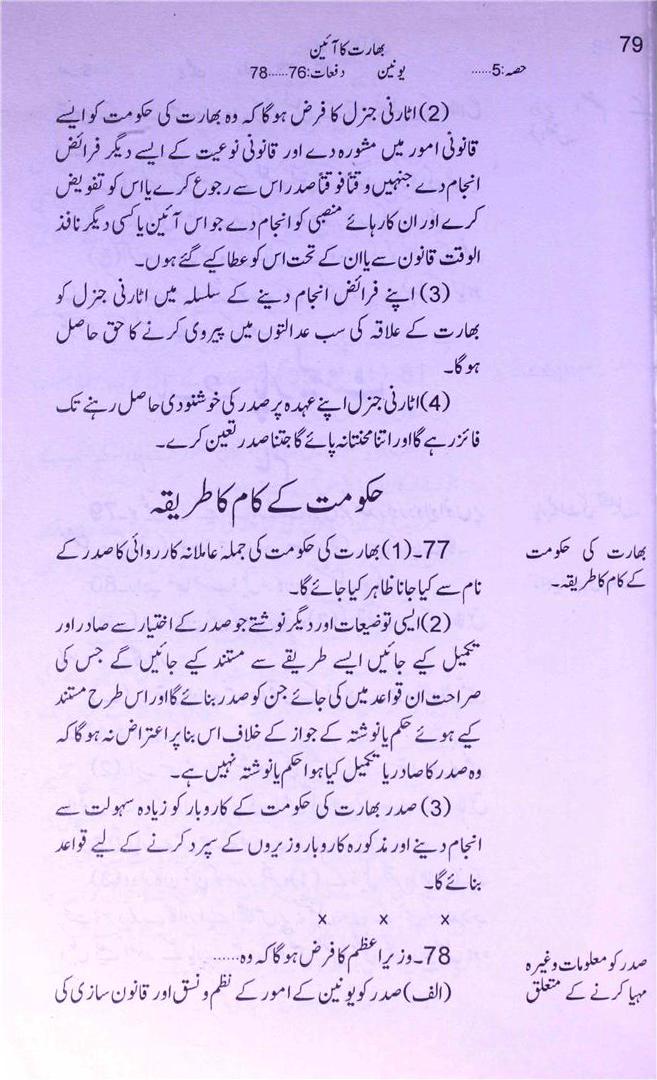 79
بھارت کا آئین
حصہ:5...... یونین دفعات:76......78
(2) اٹارنی جنرل کا فرض ہوگا کہ وہ بھارت کی حکومت کو ایسے
قانونی امور میں مشورہ دے اور قانونی نوعیت کے ایسے دیگر فرائض
انجام دے جنہیں وقتاً فوقتاً صدر اس سے رجوع کرے یا اس کو تفویض
کرے اور ان کارہائے منصبی کو انجام دے جو اس آئین یا کسی دیگر نافذ
الوقت قانون سے یا ان کے تحت اس کو عطا کیے گئے ہوں۔
(3) اپنے فرائض انجام دینے کے سلسلہ میں اٹارنی جنرل کو
بھارت کے علاقہ کی سب عدالتوں میں پیروی کرنے کا حق حاصل
ہوگا۔
(4) اٹارنی جنرل اپنے عہدہ پر صدر کی خوشنودی حاصل رہنے تک
فائز رہے گا اور اتنا مختانہ پائے گا جتنا صدر تعین کرے۔
حکومت کے کام کا طریقہ
بھارت کی حکومت
کے کام کا طریقہ۔
77۔(1) بھارت کی حکومت کی جملہ عاملانہ کارروائی کا صدر کے
نام سے کیا جانا ظاہر کیا جائے گا۔
(2) ایسی توضیعات اور دیگر نوشتے جو صدر کے اختیار سے صادر اور
تکمیل کیے جائیں ایسے طریقے سے مستند کیے جائیں گے جس کی
صراحت ان قواعد میں کی جائے جن کو صدر بنائے گا اور اس طرح مستند
کیے ہوئے حکم یا نوشتہ کے جواز کے خلاف اس بنا پر اعتراض نہ ہوگا کہ
وہ صدر کا صادر یا تکمیل کیا ہوا حکم یا نوشتہ نہیں ہے۔
(3) صدر بھارت کی حکومت کے کاروبار کو زیادہ سہولت سے
انجام دینے اور مذکورہ کاروبار وزیروں کے سپرد کرنے کے لیے قواعد
بنائے گا۔
x x x
صدر کو معلومات وغیرہ
مہیا کرنے کے متعلق
78۔ وزیر اعظم کا فرض ہوگا کہ وہ......
(الف) صدر کو یونین کے امور کے نظم و نسق اور قانون سازی کی